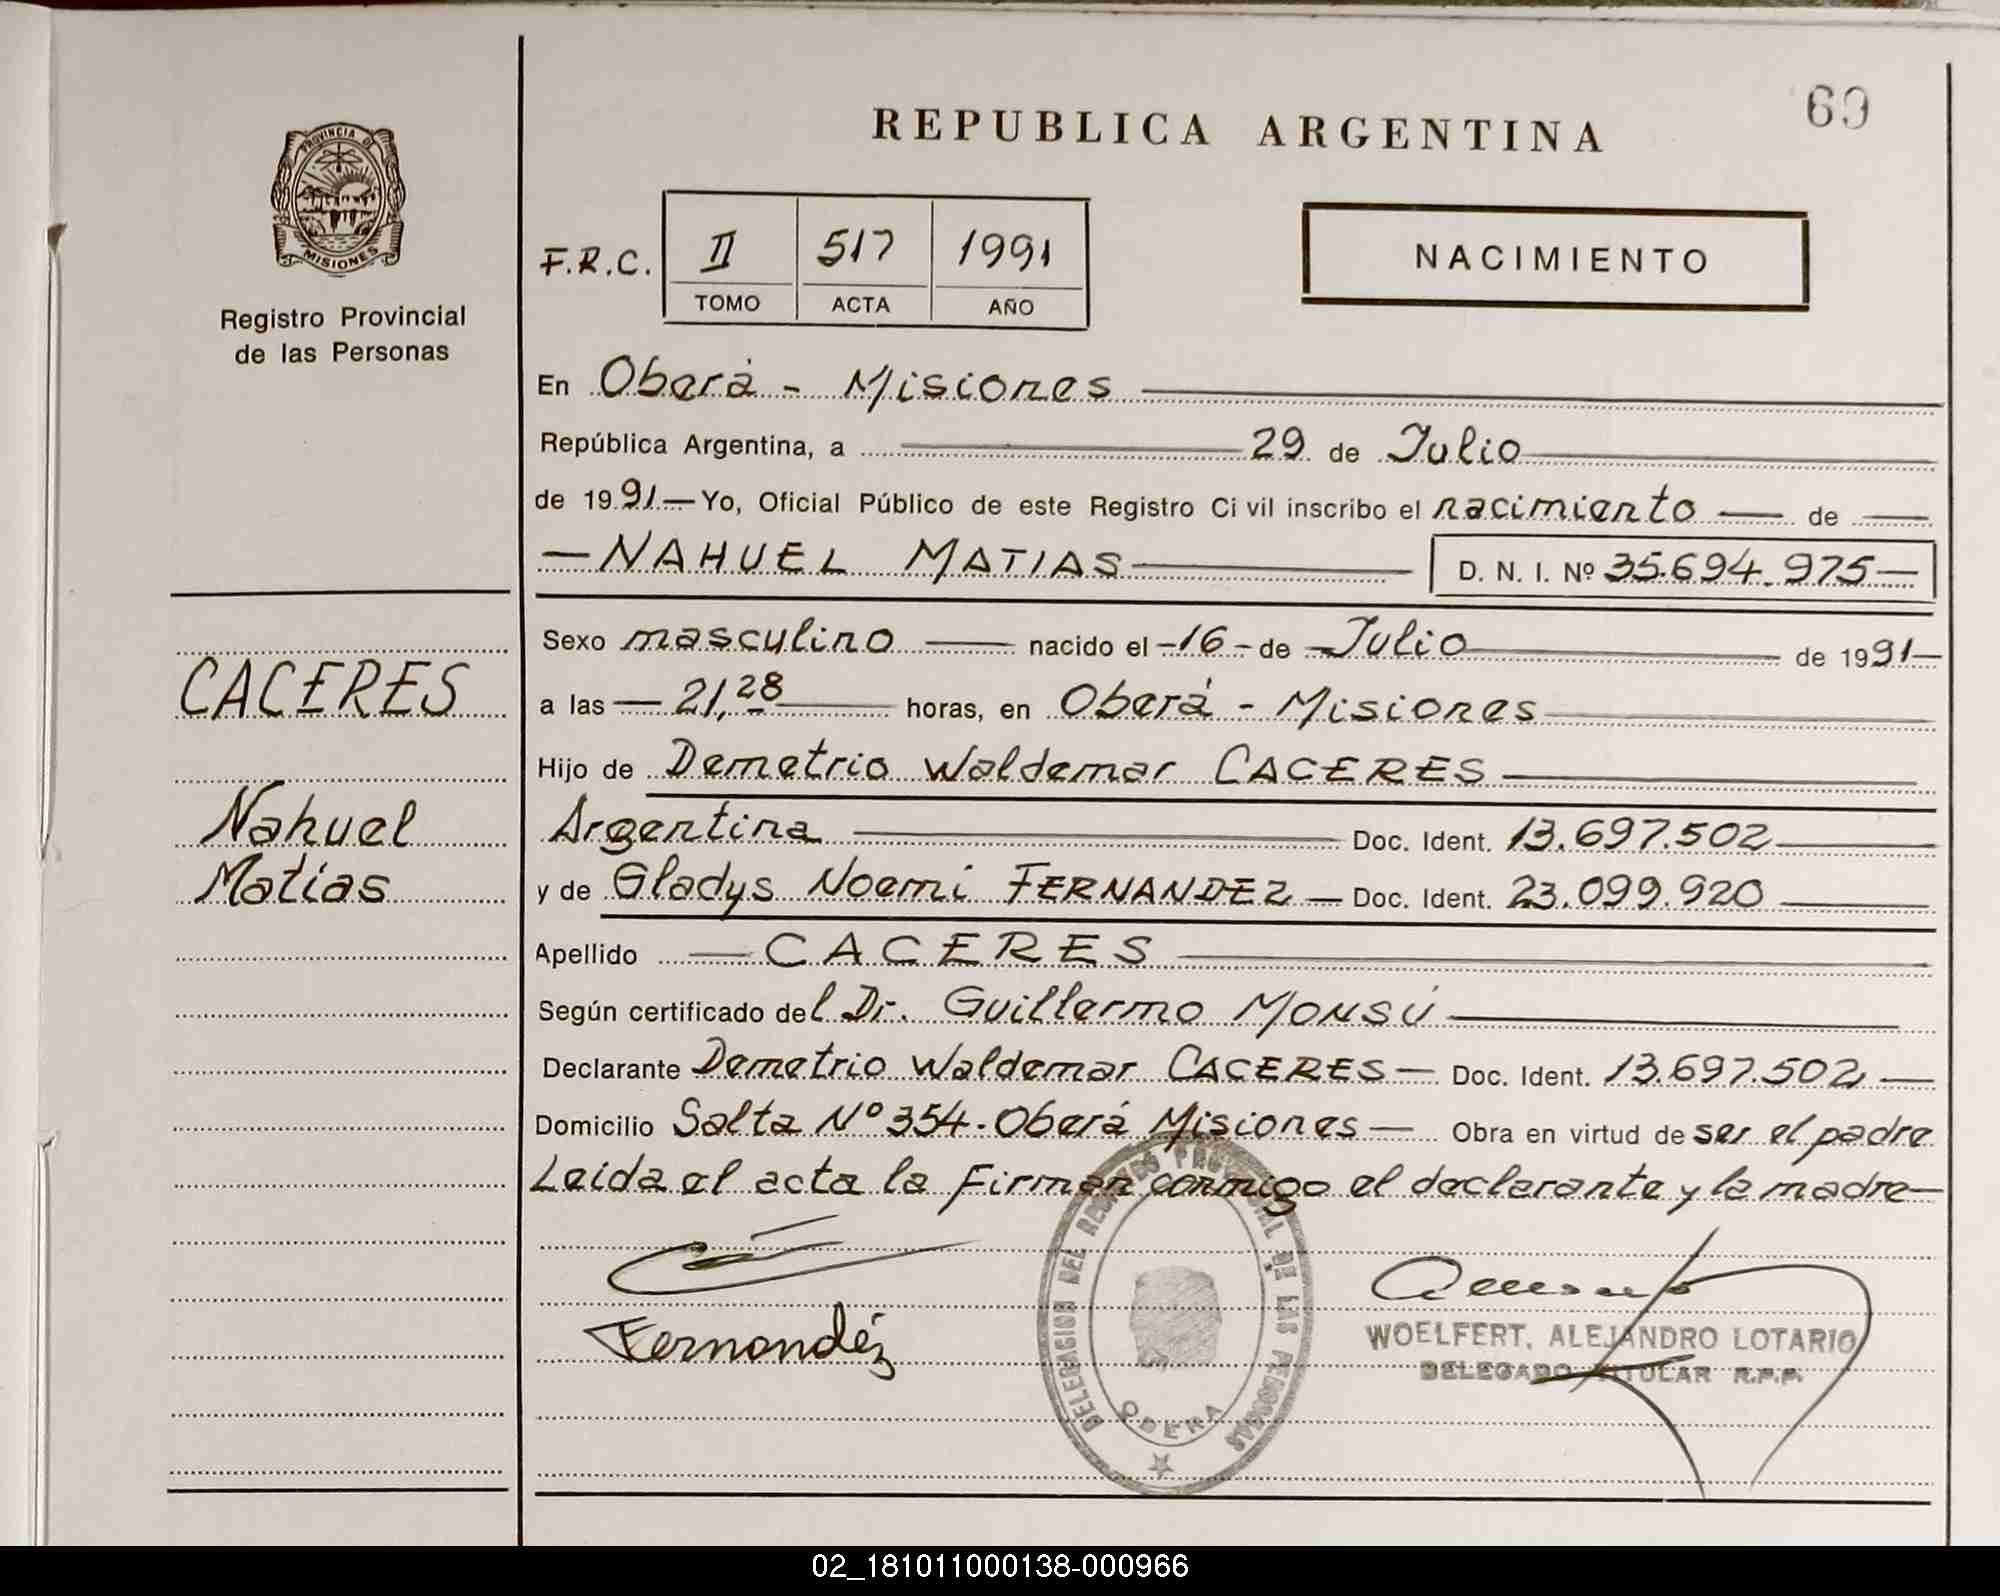 69
REPUBLICA ARGENTINA
PROVINCIA DE
MISIONES
Registro Provincial
de las Personas
F.R.C. II 517 1991
TOMO ACTA AÑO
NACIMIENTO
En Oberá - Misiones
República Argentina, a 29 de Julio
de 1991 — Yo, Oficial Público de este Registro Civil inscribo el nacimiento — de —
— NAHUEL MATIAS — D. N. I. Nº 35.694.975 —
Sexo masculino — nacido el -16- de — Julio — de 1991 —
a las — 21,28 — horas, en Oberá - Misiones —
Hijo de Demetrio Waldemar CACERES —
Argentina — Doc. Ident. 13.697.502 —
y de Gladys Noemi FERNANDEZ — Doc. Ident. 23.099.920 —
Apellido — CACERES —
Según certificado del Dr. Guillermo MONSÚ —
Declarante Demetrio Waldemar CACERES — Doc. Ident. 13.697.502 —
Domicilio Salta Nº 354 - Oberá Misiones — Obra en virtud de ser el padre
Leida el acta la firman conmigo el declarante y la madre —
CACERES
Nahuel
Matias
Fernandéz
DELEGACION DEL REGISTRO PROVINCIAL DE LAS PERSONAS
OBERA
WOELFERT, ALEJANDRO LOTARIO
DELEGADO TITULAR R.P.P.
02_181011000138-000966